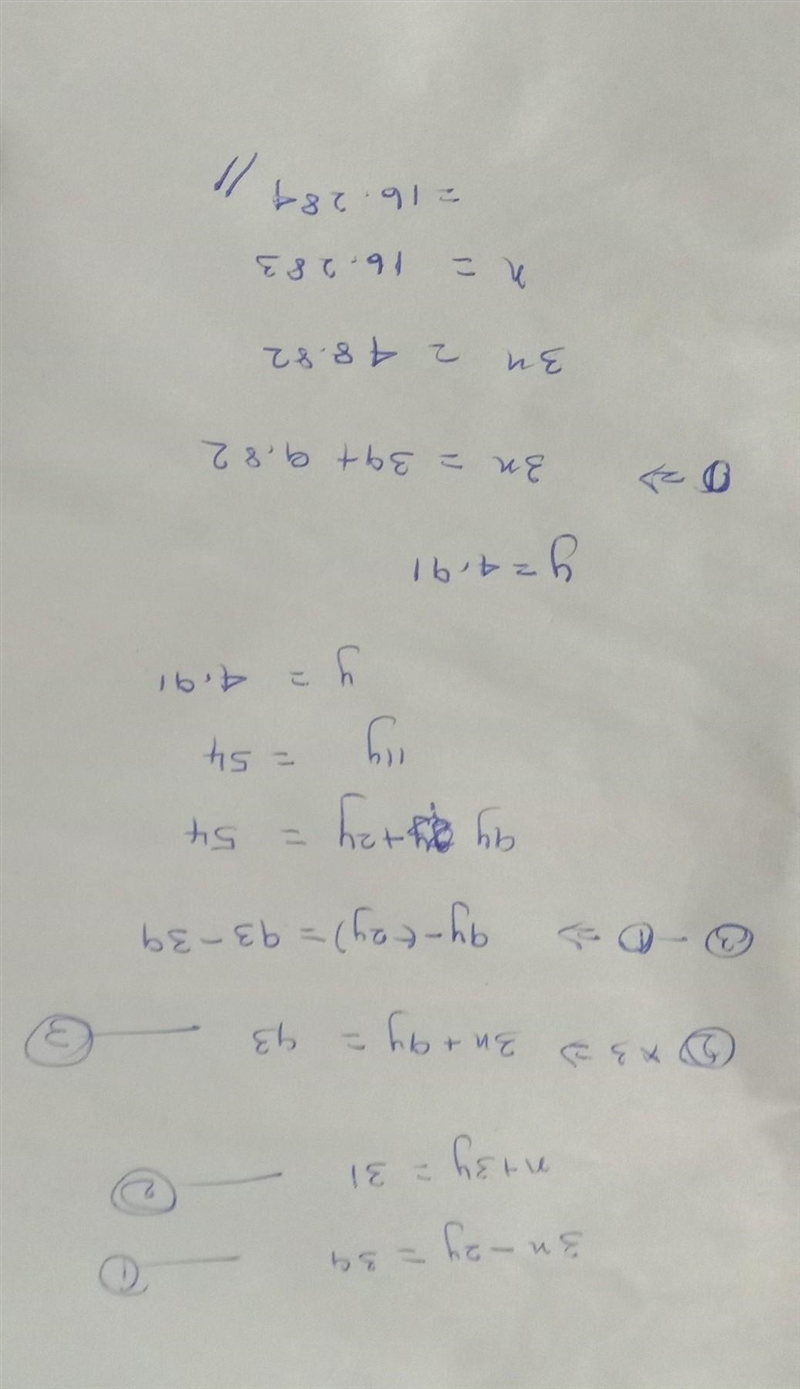 3x − 2y = 39 — ①
x + 3y = 31 — ②
② × 3 ⇒ 3x + 9y = 93 — ③
③ − ① ⇒ 9y − (−2y) = 93 − 39
9y + 2y = 54
11y = 54
y = 4.91
y = 4.91
① ⇒ 3x = 39 + 9.82
3x = 48.82
x = 16.283
= 16.284 //